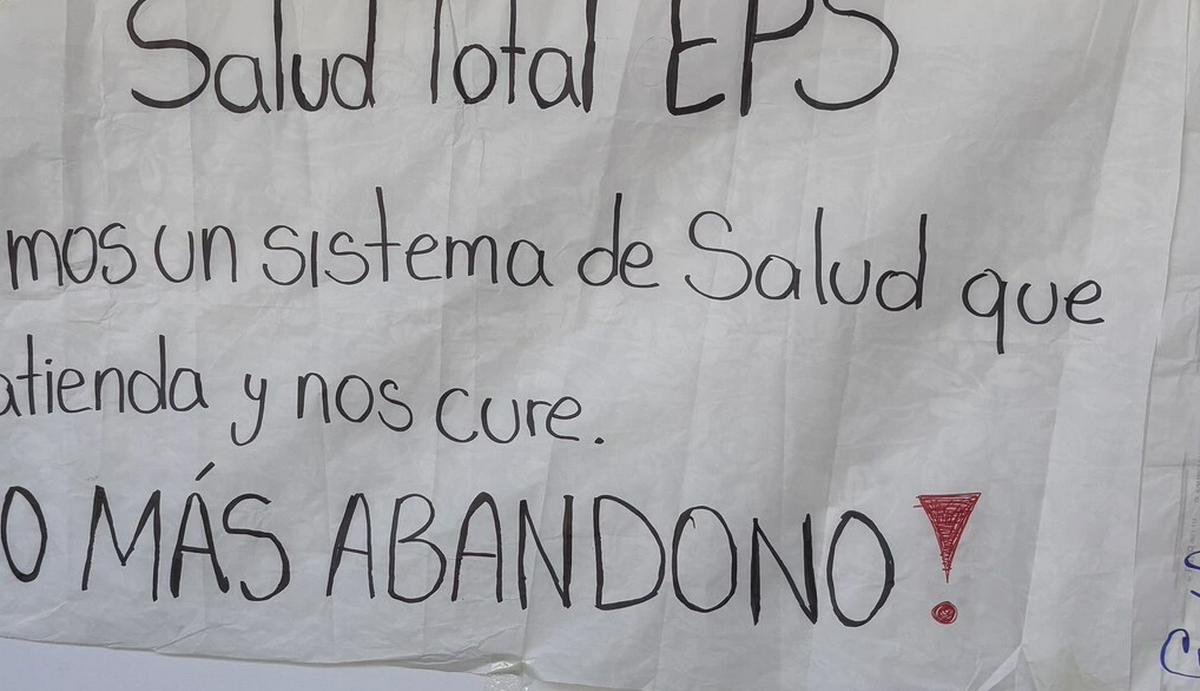 Salud Total EPS
mos un sistema de Salud que
atienda y nos cure.
O MÁS ABANDONO!